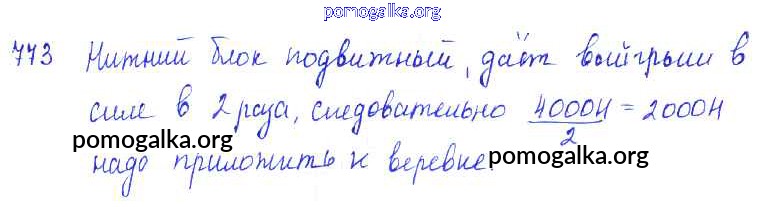 pomogalka.org
773 Нижний блок подвижный, даёт выигрыш в
силе в 2 раза, следовательно 4000Н/2 = 2000Н
pomogalka.org
надо приложить к веревке. pomogalka.org